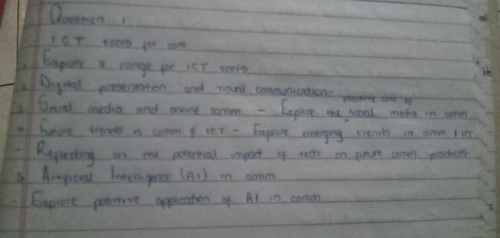 Question 1
ICT tools for com
- Explore a range for ICT tools
2 Digital presentation and communication.
3 Social media and online comm - Explore the positive role of social media in comm
4 Future trends in comm & ICT - Explore emerging trends in comm & ICT
- Reflecting on the potential impact of tech on future comm practices.
5 Artificial Intelligence (AI) in comm
- Explore positive application of AI in comm